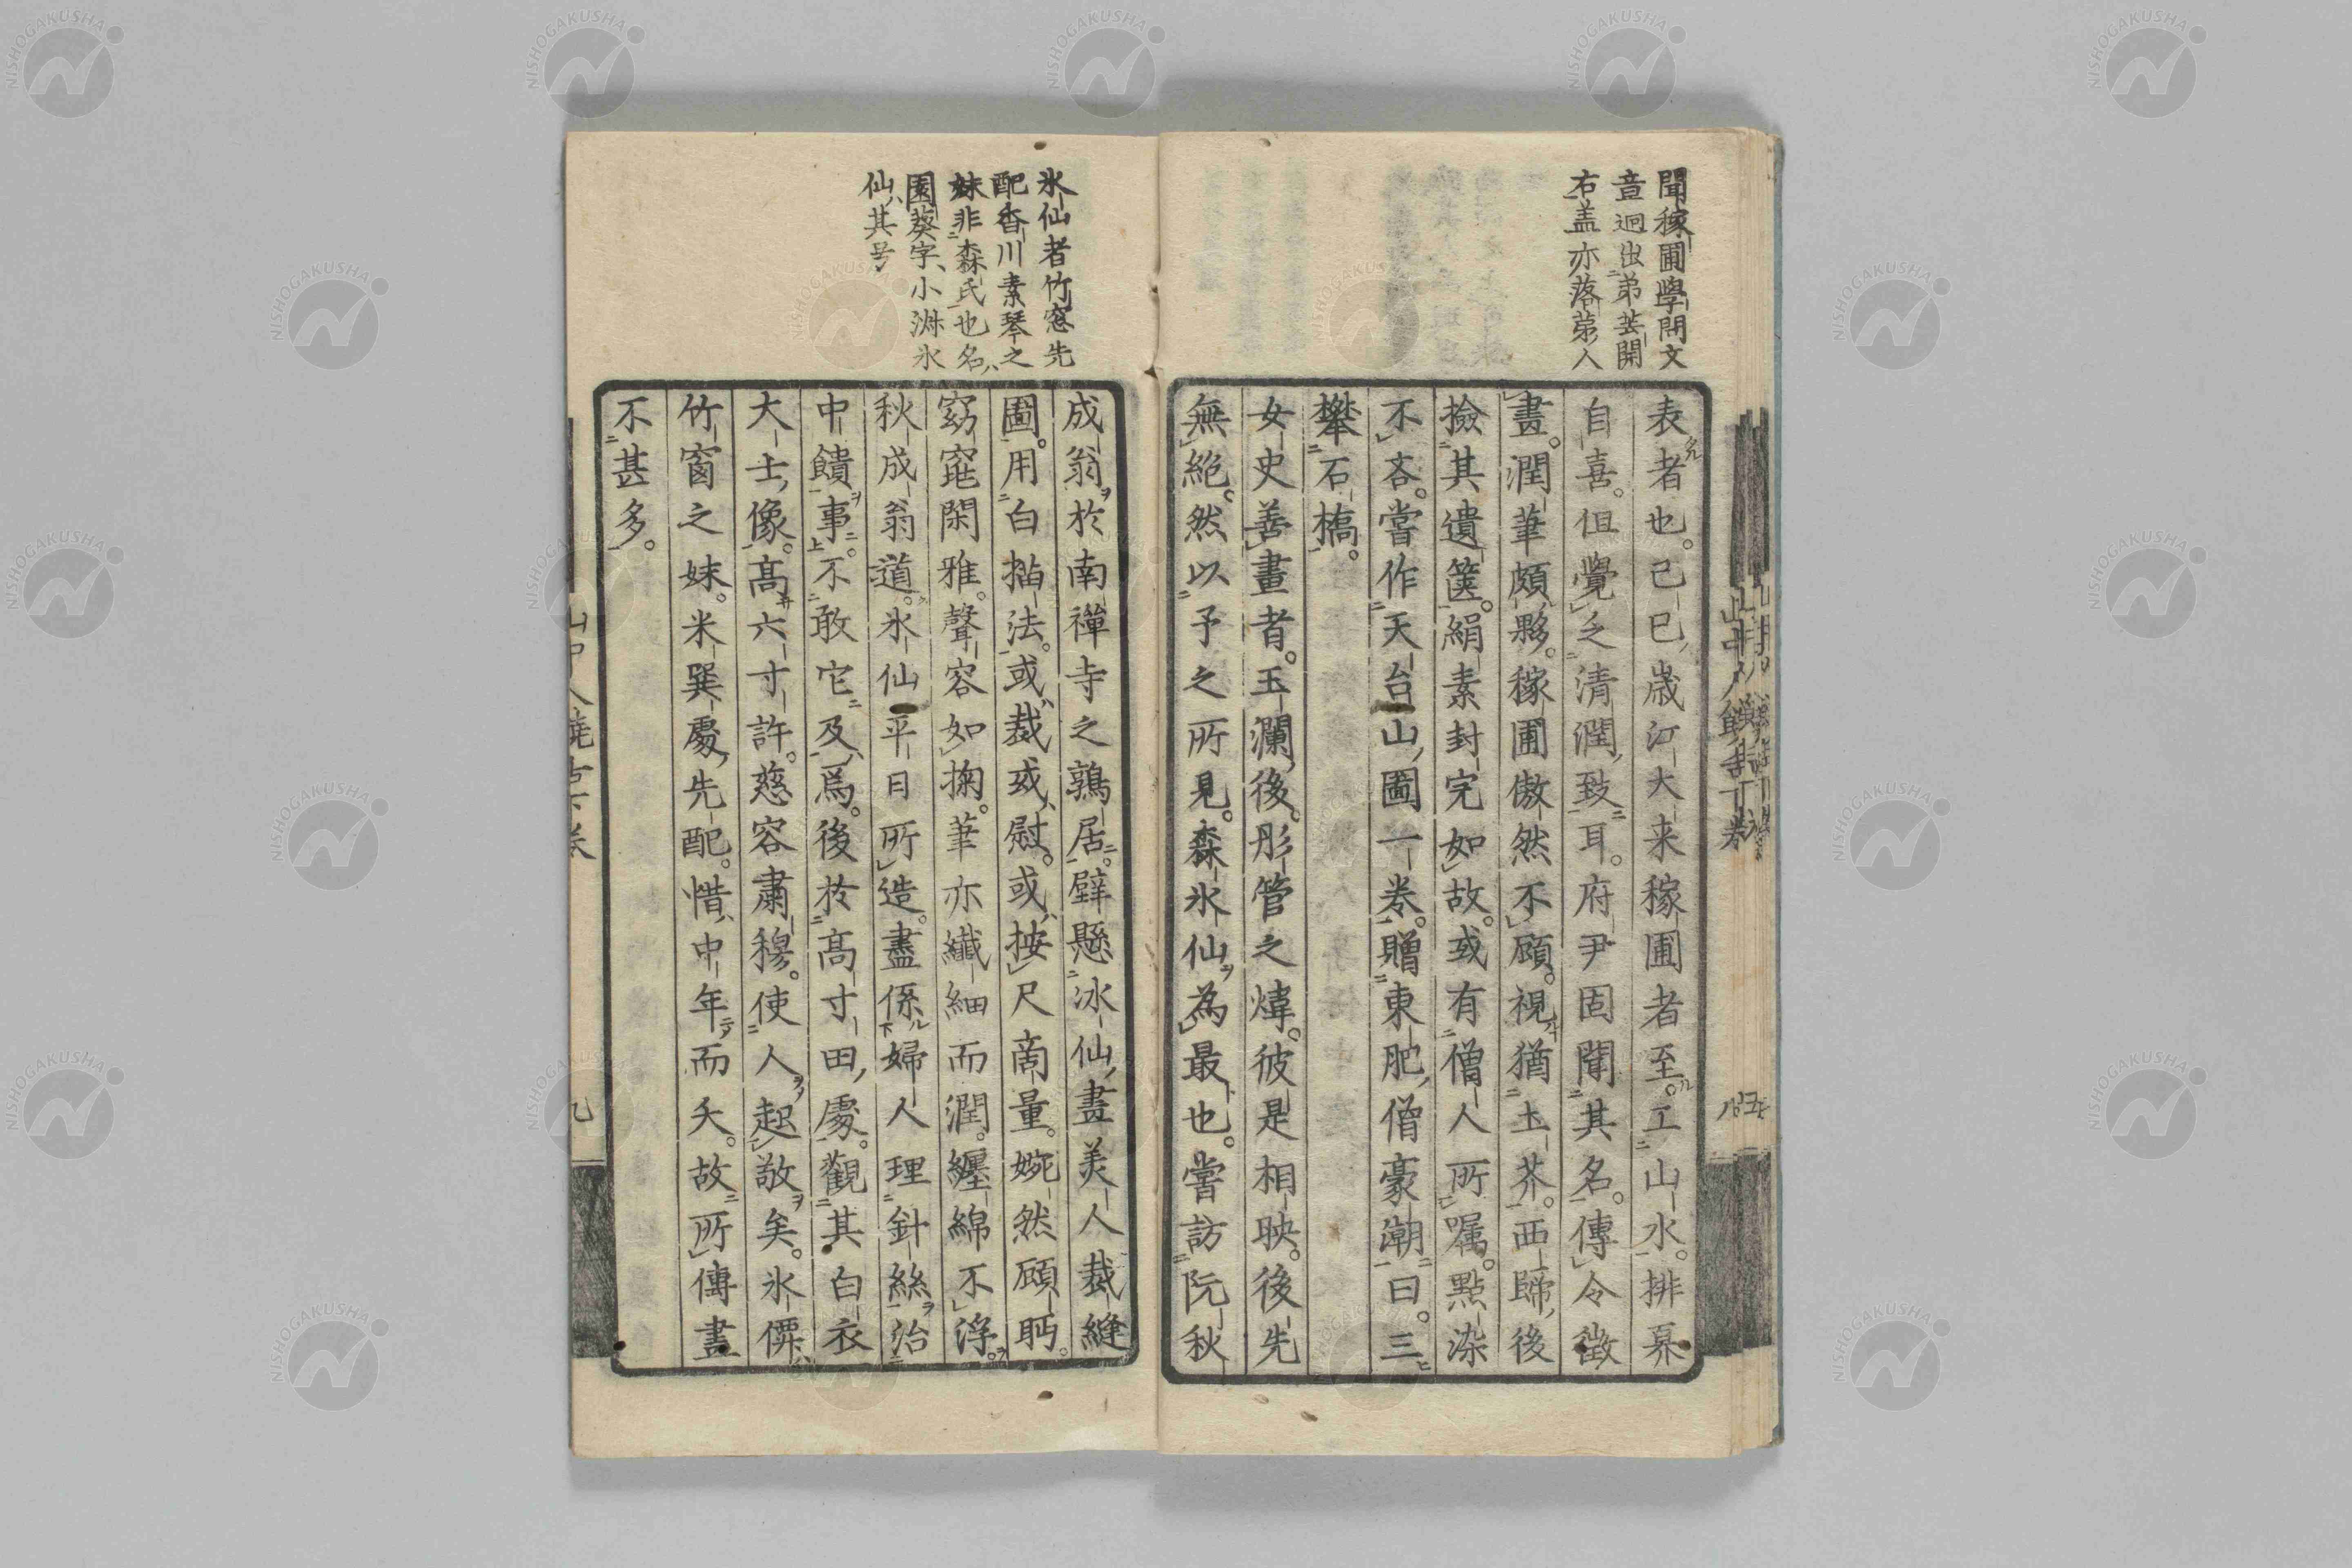 聞稼圃學問文
章迥出弟芸開
右盖亦落第人
表者也。己巳歲江大来稼圃者至。工山水。排奡
自喜。但覺乏清潤致耳。府尹固聞其名。傳令徵
畫。潤筆頗夥。稼圃傲然不顧。視猶土芥。西歸後
撿其遺篋。絹素封完如故。或有僧人所嘱。點染
不吝。嘗作天台山圖一卷。贈東肥僧豪潮曰。三
攀石橋。
女史善畫者。玉瀾後。彤管之煒。彼是相映。後先
無絕。然以予之所見。森氷仙為最也。嘗訪阮秋
氷仙者竹窓先
配香川素琴之
妹非森氏也名
園葵字小淋氷
仙其号
成翁於南禪寺之鶉居。壁懸冰仙畫美人裁縫
圖。用白描法。或裁或熨。或按尺商量。婉然顧眄。
窈窕閑雅。聲容如掬。筆亦纖細而潤。纏綿不浮。
秋成翁道。氷仙平日所造。盡係婦人理針絲治
中饋事。不敢它及焉。後於髙寸田處。觀其白衣
大士像。髙六寸許。慈容肅穆。使人起敬矣。氷僊
竹窗之妹。米巽處先配。惜中年而夭。故所傳畫
不甚多。